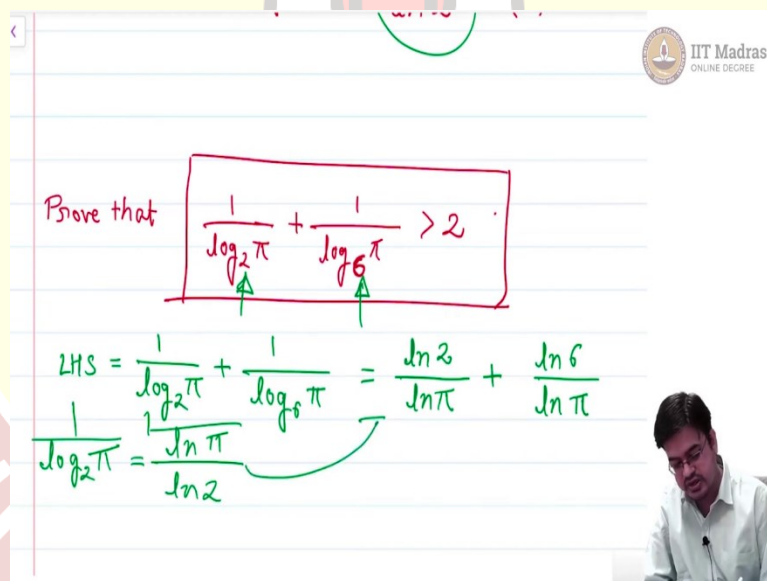 IIT Madras
ONLINE DEGREE
Prove that 1/log₂π + 1/log₆π > 2
LHS = 1/log₂π + 1/log₆π = ln2/lnπ + ln6/lnπ
1/log₂π = 1/(lnπ/ln2)